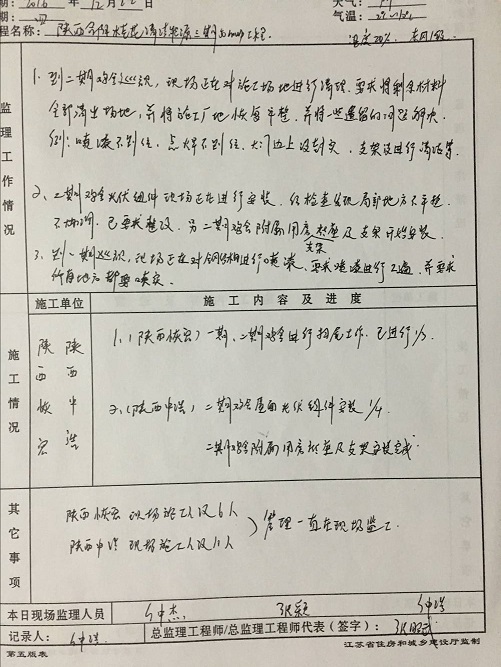 期: 2016 年 12月22日
天气:
期: 四
气温:
程名称: 陕西合阳 清洁能源二期50MW工程
湿度20% 东风1级
监理工作情况
1. 到二期鸡舍巡视, 现场正在对施工场地进行清理, 要求将剩余材料
全部清出场地, 并将施工厂地恢复平整, 并将一些遗留的问题解决
例: 喷漆不到位, 点焊不到位, 大门边上没封实, 支架没进行清洁等.
2、二期鸡舍光伏组件现场正在进行安装, 经检查发现局部地方不平整,
已要求整改. 另二期鸡舍附属用房桩基及支架开始安装.
支架
3. 到一期巡视, 现场正在对钢结构进行喷漆, 要求喷漆进行二遍, 并要求
所有地方都要喷实.
施工单位
施 工 内 容 及 进 度
施工情况
陕西恢宏
陕西中浩
1、(陕西恢宏) 一期、二期鸡舍进行扫尾工作. 已进行1/3.
2、(陕西中浩) 二期鸡舍屋面光伏组件安装 1/4
二期鸡舍附属用房桩基及支架安装完成.
其它事项
陕西恢宏 现场施工人员6人
陕西中浩 现场施工人员11人
管理一直在现场监工.
本日现场监理人员
记录人:
总监理工程师/总监理工程师代表(签字):
第五版表
江苏省住房和城乡建设厅监制